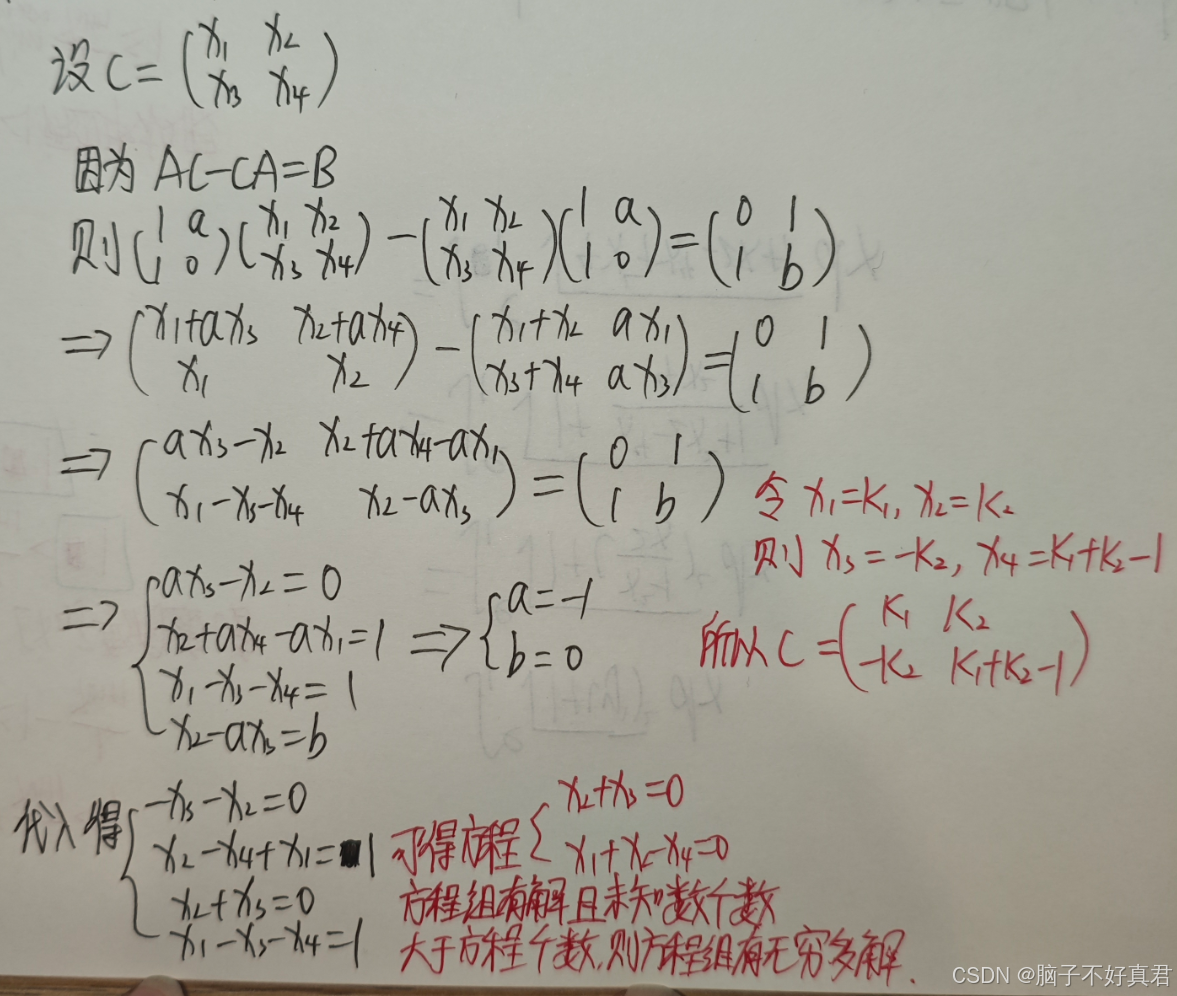 设 C = (x₁ x₂
x₃ x₄)
因为 AC-CA=B
则 (1 a
1 0)(x₁ x₂
x₃ x₄) - (x₁ x₂
x₃ x₄)(1 a
1 0) = (0 1
1 b)
⇒ (x₁+ax₃ x₂+ax₄
x₁ x₂) - (x₁+x₂ ax₁
x₃+x₄ ax₃) = (0 1
1 b)
⇒ (ax₃-x₂ x₂+ax₄-ax₁
x₁-x₃-x₄ x₂-ax₃) = (0 1
1 b)
⇒ { ax₃-x₂=0
x₂+ax₄-ax₁=1
x₁-x₃-x₄=1
x₂-ax₃=b
⇒ { a=-1
b=0
令 x₁=k₁, x₂=k₂
则 x₃=-k₂, x₄=k₁+k₂-1
所以 C = (k₁ k₂
-k₂ k₁+k₂-1)
代入得 { -x₃-x₂=0
x₂-x₄+x₁=1
x₂+x₃=0
x₁-x₃-x₄=1
可得方程 { x₂+x₃=0
x₁+x₂-x₄=0
方程组有解且未知数个数
大于方程个数,则方程组有无穷多解.
CSDN @脑子不好真君